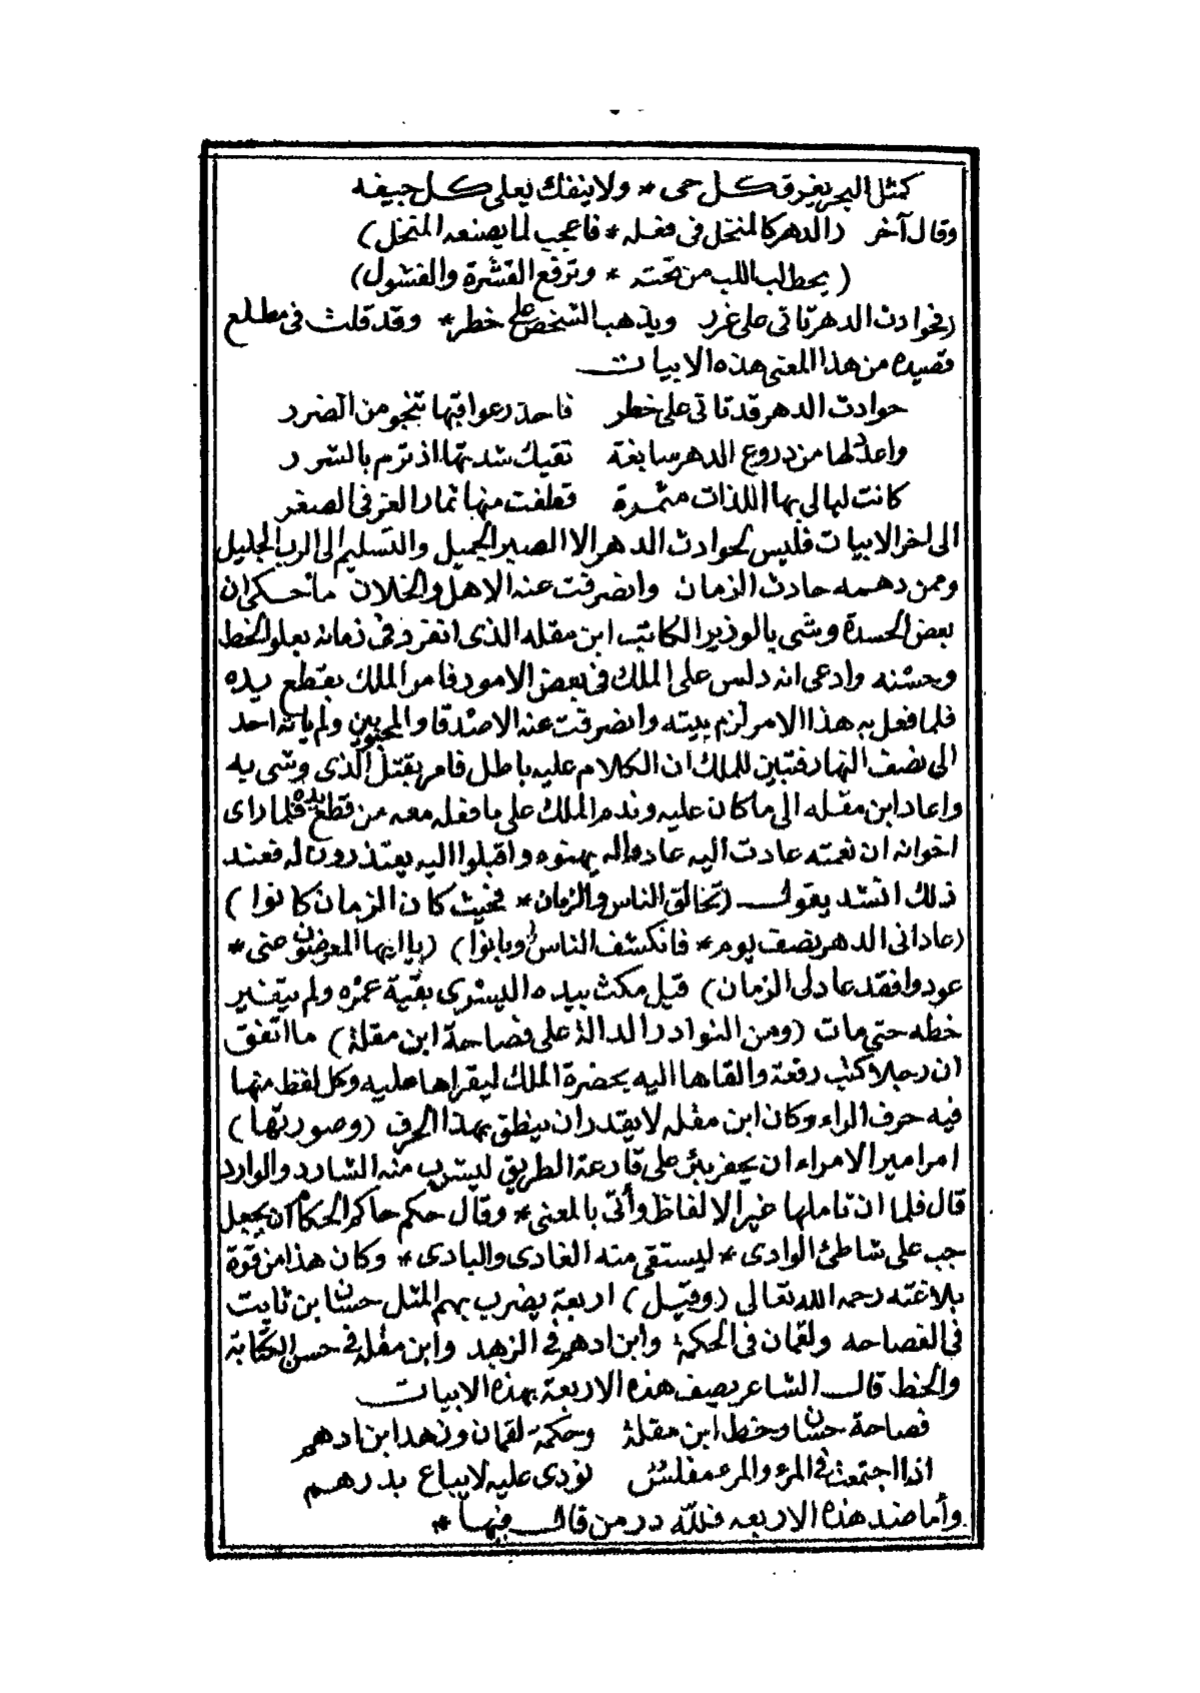 كمثل البحر يغرق كل حى * ولا ينفك يعلى كل جيفه
وقال آخر (الدهر كالمنخل فى فعله * فاعجب لما يصنعه المنخل)
(يحط لب اللب من تحته * وترفع القشرة والفشول)
(فحوادث الدهر تاتى على غرر ويذهب الشخص على خطر * وقد قلت فى مطلع
قصيده من هذا المعنى هذه الابيات
حوادث الدهر قد تاتى على خطر فاحذر عواقبها تنجو من الضرر
واعد لها من دروع الدهر سابغة تقيك شدتها اذ ترم بالشرر
كانت ليالى بها اللذات مثمرة قطفت منها ثمار العز فى الصغر
الى اخر الابيات فليس لحوادث الدهر الا الصبر الجميل والتسليم الى الرب الجليل
وممن دهمه حادث الزمان وانصرفت عنه الاهل والخلان ما حكى ان
بعض الحسدة وشى بالوزير الكاتب ابن مقله الذى انفرد فى زمانه بعلو الخط
وحسنه وادعى انه دلس على الملك فى بعض الامور فامر الملك بقطع يده
فلما فعل به هذا الامر لزم بيته وانصرفت عنه الاصدقا والمحبوبين ولم ياته احد
الى نصف النهار فتبين للملك ان الكلام عليه باطل فامر بقتل الذى وشى به
واعاد ابن مقله الى ما كان عليه وندم الملك على ما فعله معه من قطع يده فلما راى
اخوانه ان نعمته عادت اليه عادوا له يهنوه واقبلوا اليه يعتذرون له فعند
ذلك انشد يقول (تحالق الناس والزمان * فحيث كان الزمان كانوا)
(عادانى الدهر نصف يوم * فانكشف الناس لى وبانوا) (يا ايها المعرضون عنى *
عودوا فقد عاد لى الزمان) قيل مكث بيده اليسرى بقية عمره ولم يتغير
خطه حتى مات (ومن النوادر الدالة على فصاحة ابن مقلة) ما اتفق
ان رجلا كتب رقعة والقاها اليه بحضرة الملك ليقراها عليه وكل لفظ منها
فيه حرف الراء وكان ابن مقله لا يقدر ان ينطق بهذا الحرف (وصورتها)
امر امير الامراء ان يحفر بئر على قارعة الطريق ليشرب منه الشارد والوارد
قال فلما ان تاملها غير الالفاظ وأتى بالمعنى * وقال حكم حاكم الحكام ان يجعل
جب على شاطئ الوادى * ليستقى منه الغادى والبادى * وكان هذا من قوة
بلاغته رحمه الله تعالى (وقيل) اربعة يضرب بهم المثل حسان ابن ثابت
فى الفصاحه ولقمان فى الحكمة وابن ادهم فى الزهد وابن مقله فى حسن الكتابة
والخط قال الشاعر يصف هذه الاربعة بهذه الابيات
فصاحة حسان وخط ابن مقلة وحكمة لقمان وزهد ابن ادهم
اذا اجتمعت فى المرء والمرء مفلس نودى عليه لا يباع بدرهم
وأما ضد هذه الاربعه فلله در من قال فيها *